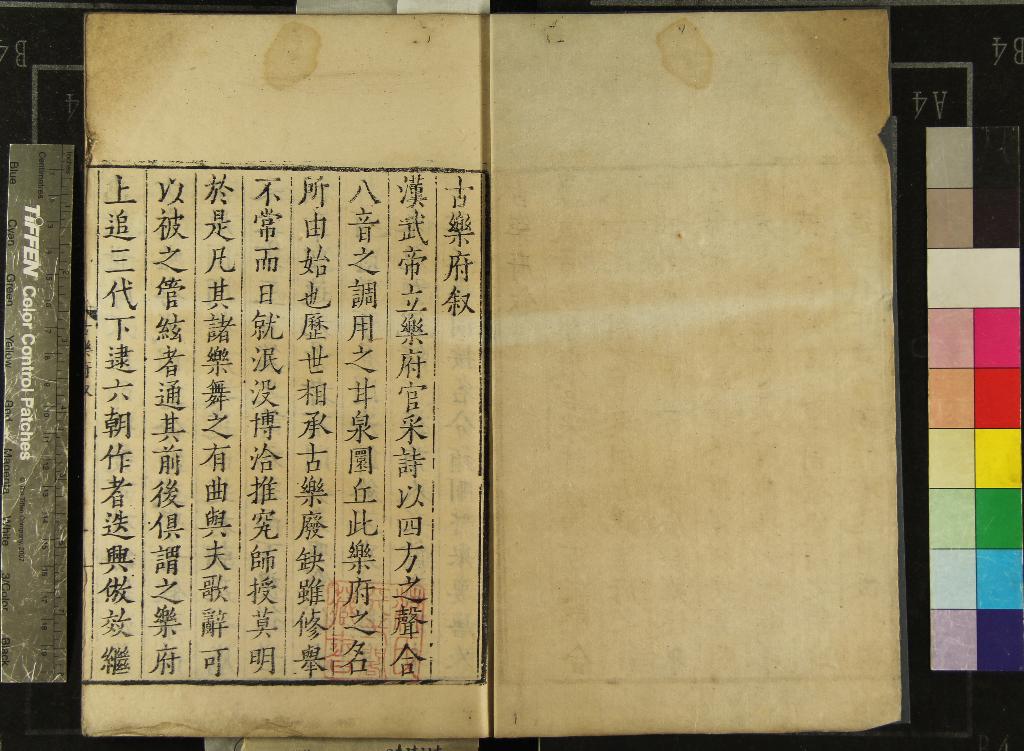 古樂府叙
漢武帝立樂府官采詩以四方之聲合
八音之調用之甘泉圜丘此樂府之名
所由始也歷世相承古樂廢缺雖修舉
不常而日就泯没博洽推究師授莫明
於是凡其諸樂舞之有曲與夫歌辭可
以被之管絃者通其前後俱謂之樂府
上追三代下逮六朝作者迭興倣效繼
樂府叙
TIFFEN Color Control Patches
© The Tiffen Company, 2007
Centimetres
Inches
Blue
Cyan
Green
Yellow
Red
Magenta
White
3/Color
Black
B4
A4
B4